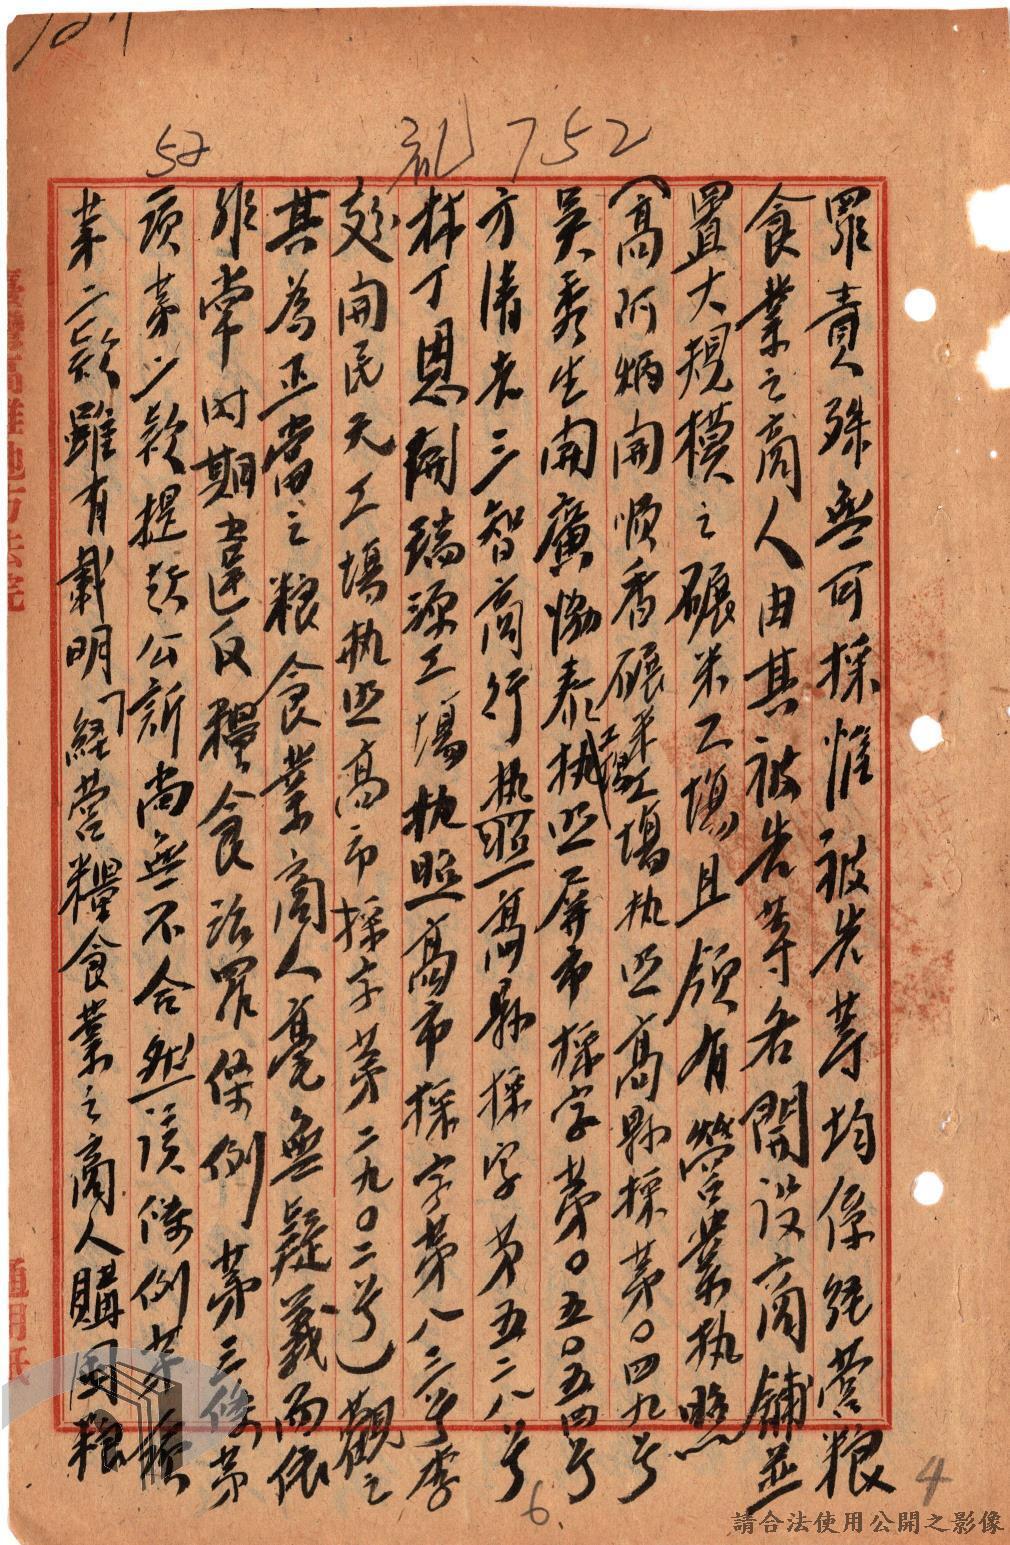 752
52
罪責殊無可採惟被告等均係經營粮
食業之商人由其被告等名開設商舖並
置大規模之碾米工塲且領有營業执照
(高阿炳開順香碾米工塲执照高縣採第0四九号
吳秀生開廣協泰工塲执照屏市採字第0五0五四号
方清老三智商行执照高縣採字第五二八号
林丁恩開瑞源工塲执照高市採字第八三号李
開民天工塲执照高市採字第二九0二号)觀之
其為正當之粮食業商人毫無疑義而依
非常时期違反糧食治罪條例第三條第
項第一款提起公訴尚無不合然该條例第
第二款雖有載明「經營糧食業之商人購囤粮
6.
4
通用紙
請合法使用公開之影像